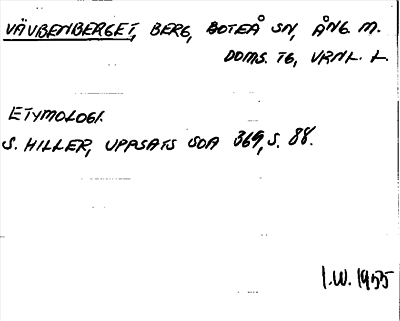 VÄVBENBERGET, BERG, BOTEÅ SN, ÅNG. M.
DOMS. TG, VRNL. L.
ETYMOLOGI.
S. HILLER, UPPSATS SOA 369, S. 88.
I.W. 1955